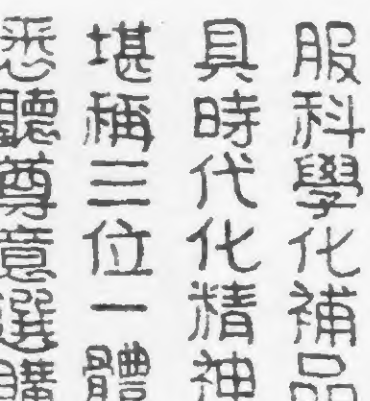 服科學化補品
具時代化精神
堪稱三位一體
悉聽尊意選購